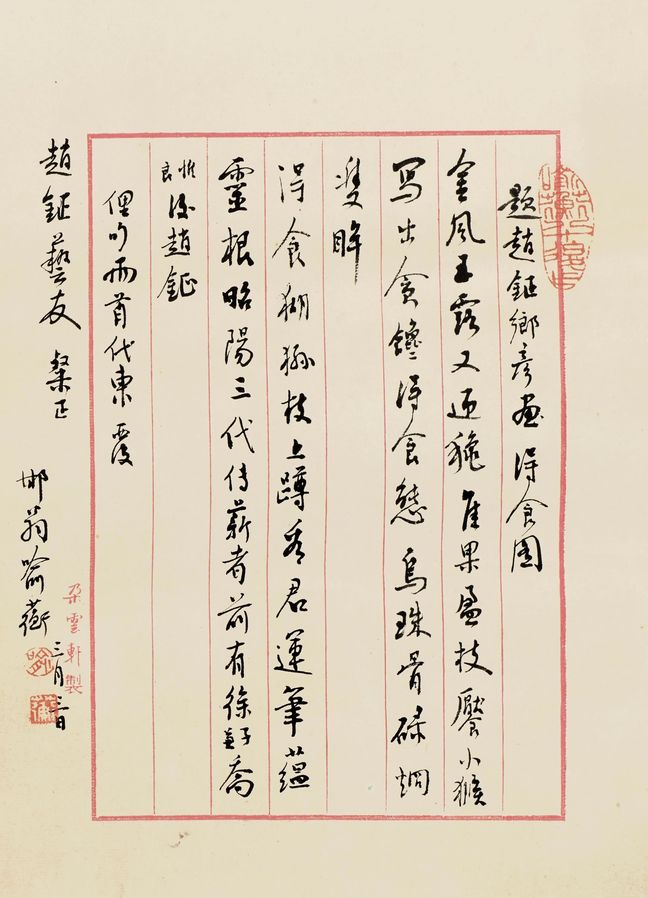 題趙鉦鄉彥畫得食圖
金風玉露又迎龝佳果盈枝饜小猴
寫出貪饞得食態烏珠骨碌烱
雙眸
得食猢猻枝上蹲看君運筆蘊
靈根昭陽三代傳薪者前有徐子兼喬
惟良後趙鉦
俚句兩首代柬覆
趙鉦藝友粲正
邯翁喻蘅三月
朵雲軒製